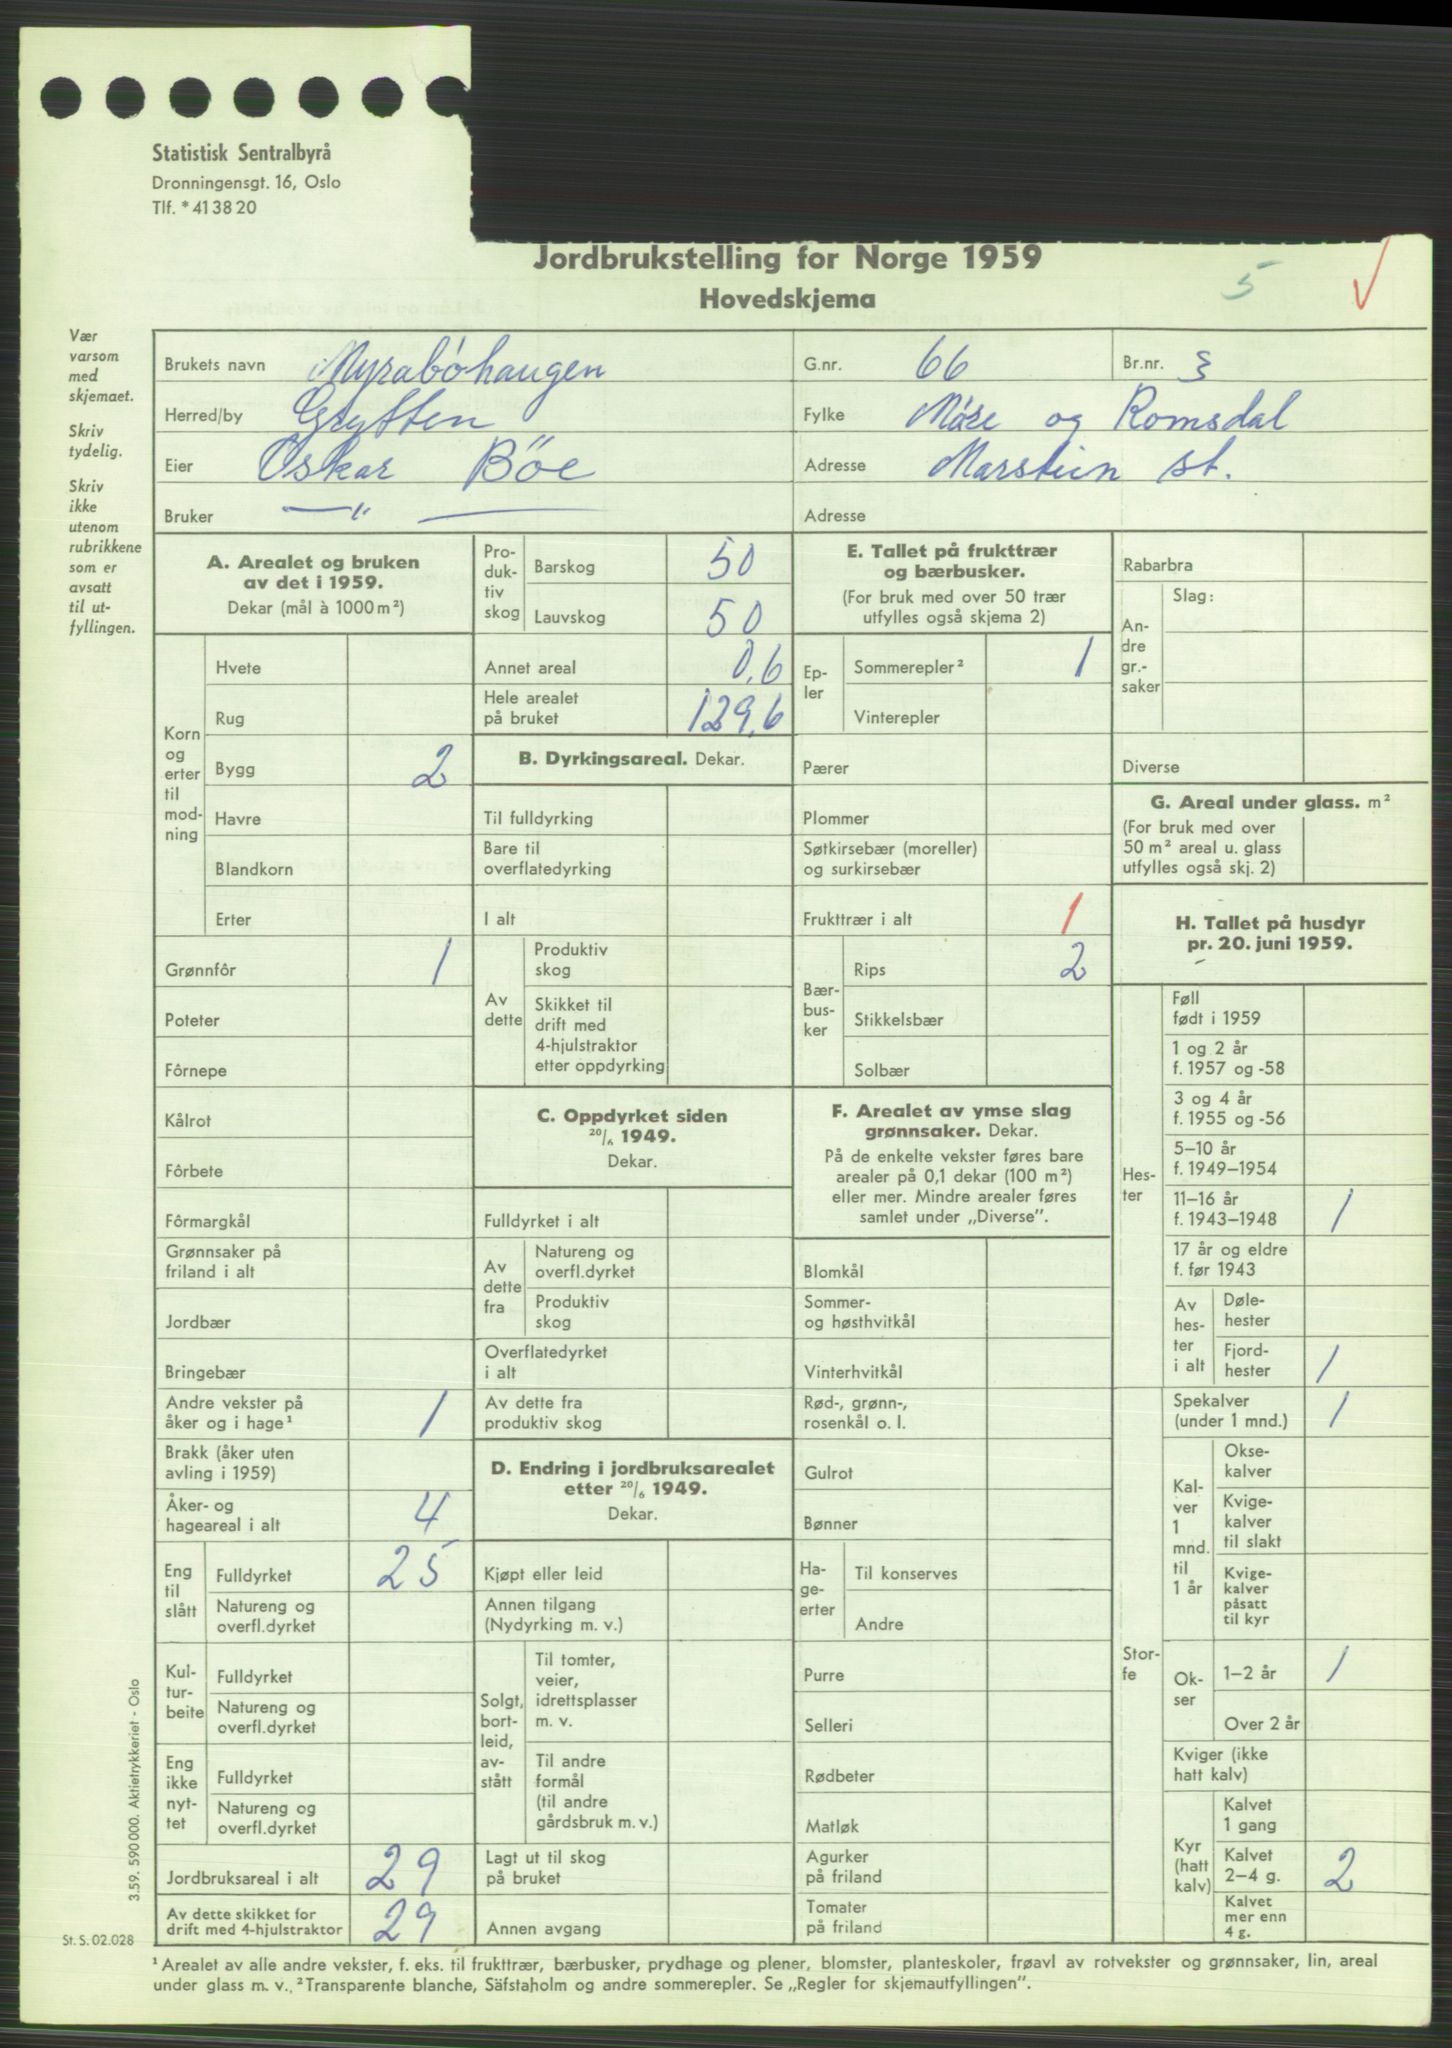 Statistisk Sentralbyrå
Dronningensgt. 16, Oslo
Tlf. * 41 38 20
Jordbrukstelling for Norge 1959
Hovedskjema
5
Vær
varsom
med
skjemaet.
Skriv
tydelig.
Skriv
ikke
utenom
rubrikkene
som er
avsatt
til ut-
fyllingen.
Brukets navn Myrabøhaugen G.nr. 66 Br.nr. 3
Herred/by Grytten Fylke Møre og Romsdal
Eier Oskar Bøe Adresse Marstein st.
Bruker — " — Adresse
A. Arealet og bruken
av det i 1959.
Dekar (mål à 1000 m²)
Korn
og
erter
til
mod-
ning
Hvete
Rug
Bygg 2
Havre
Blandkorn
Erter
Grønnfôr 1
Poteter
Fôrnepe
Kålrot
Fôrbete
Fôrmargkål
Grønnsaker på
friland i alt
Jordbær
Bringebær
Andre vekster på
åker og i hage¹ 1
Brakk (åker uten
avling i 1959)
Åker- og
hageareal i alt 4
Eng
til
slått
Fulldyrket 25
Natureng og
overfl.dyrket
Kul-
tur-
beite
Fulldyrket
Natureng og
overfl.dyrket
Eng
ikke
nyt-
tet
Fulldyrket
Natureng og
overfl.dyrket
Jordbruksareal i alt 29
Av dette skikket for
drift med 4-hjulstraktor 29
Pro-
duk-
tiv
skog
Barskog 50
Lauvskog 50
Annet areal 0,6
Hele arealet
på bruket 129,6
B. Dyrkingsareal. Dekar.
Til fulldyrking
Bare til
overflatedyrking
I alt
Av
dette
Produktiv
skog
Skikket til
drift med
4-hjulstraktor
etter oppdyrking
C. Oppdyrket siden
20/6 1949.
Dekar.
Fulldyrket i alt
Av
dette
fra
Natureng og
overfl.dyrket
Produktiv
skog
Overflatedyrket
i alt
Av dette fra
produktiv skog
D. Endring i jordbruksarealet
etter 20/6 1949.
Dekar.
Kjøpt eller leid
Annen tilgang
(Nydyrking m. v.)
Solgt,
bort-
leid,
av-
stått
Til tomter,
veier,
idrettsplasser
m. v.
Til andre
formål
(til andre
gårdsbruk m. v.)
Lagt ut til skog
på bruket
Annen avgang
E. Tallet på frukttrær
og bærbusker.
(For bruk med over 50 trær
utfylles også skjema 2)
Ep-
ler
Sommerepler² 1
Vinterepler
Pærer
Plommer
Søtkirsebær (moreller)
og surkirsebær
Frukttrær i alt 1
Bær-
bus-
ker
Rips 2
Stikkelsbær
Solbær
F. Arealet av ymse slag
grønnsaker. Dekar.
På de enkelte vekster føres bare
arealer på 0,1 dekar (100 m²)
eller mer. Mindre arealer føres
samlet under „Diverse”.
Blomkål
Sommer-
og høsthvitkål
Vinterhvitkål
Rød-, grønn-,
rosenkål o. l.
Gulrot
Bønner
Ha-
ge-
erter
Til konserves
Andre
Purre
Selleri
Rødbeter
Matløk
Agurker
på friland
Tomater
på friland
Rabarbra
An-
dre
gr.-
saker
Slag:
Diverse
G. Areal under glass. m²
(For bruk med over
50 m² areal u. glass
utfylles også skj. 2)
H. Tallet på husdyr
pr. 20. juni 1959.
Hes-
ter
Føll
født i 1959
1 og 2 år
f. 1957 og -58
3 og 4 år
f. 1955 og -56
5–10 år
f. 1949–1954
11–16 år
f. 1943–1948 1
17 år og eldre
f. før 1943
Av
hes-
ter
i alt
Døle-
hester
Fjord-
hester 1
Stor-
fe
Spekalver
(under 1 mnd.) 1
Kal-
ver
1
mnd.
til
1 år
Okse-
kalver
Kvige-
kalver
til slakt
Kvige-
kalver
påsatt
til kyr
Ok-
ser
1–2 år 1
Over 2 år
Kviger (ikke
hatt kalv)
Kyr
(hatt
kalv)
Kalvet
1 gang
Kalvet
2–4 g. 2
Kalvet
mer enn
4 g.
3.59. 590 000. Aktietrykkeriet - Oslo
St. S. 02.028
¹ Arealet av alle andre vekster, f. eks. til frukttrær, bærbusker, prydhage og plener, blomster, planteskoler, frøavl av rotvekster og grønnsaker, lin, areal
under glass m. v. ² Transparente blanche, Säfstaholm og andre sommerepler. Se „Regler for skjemautfyllingen”.